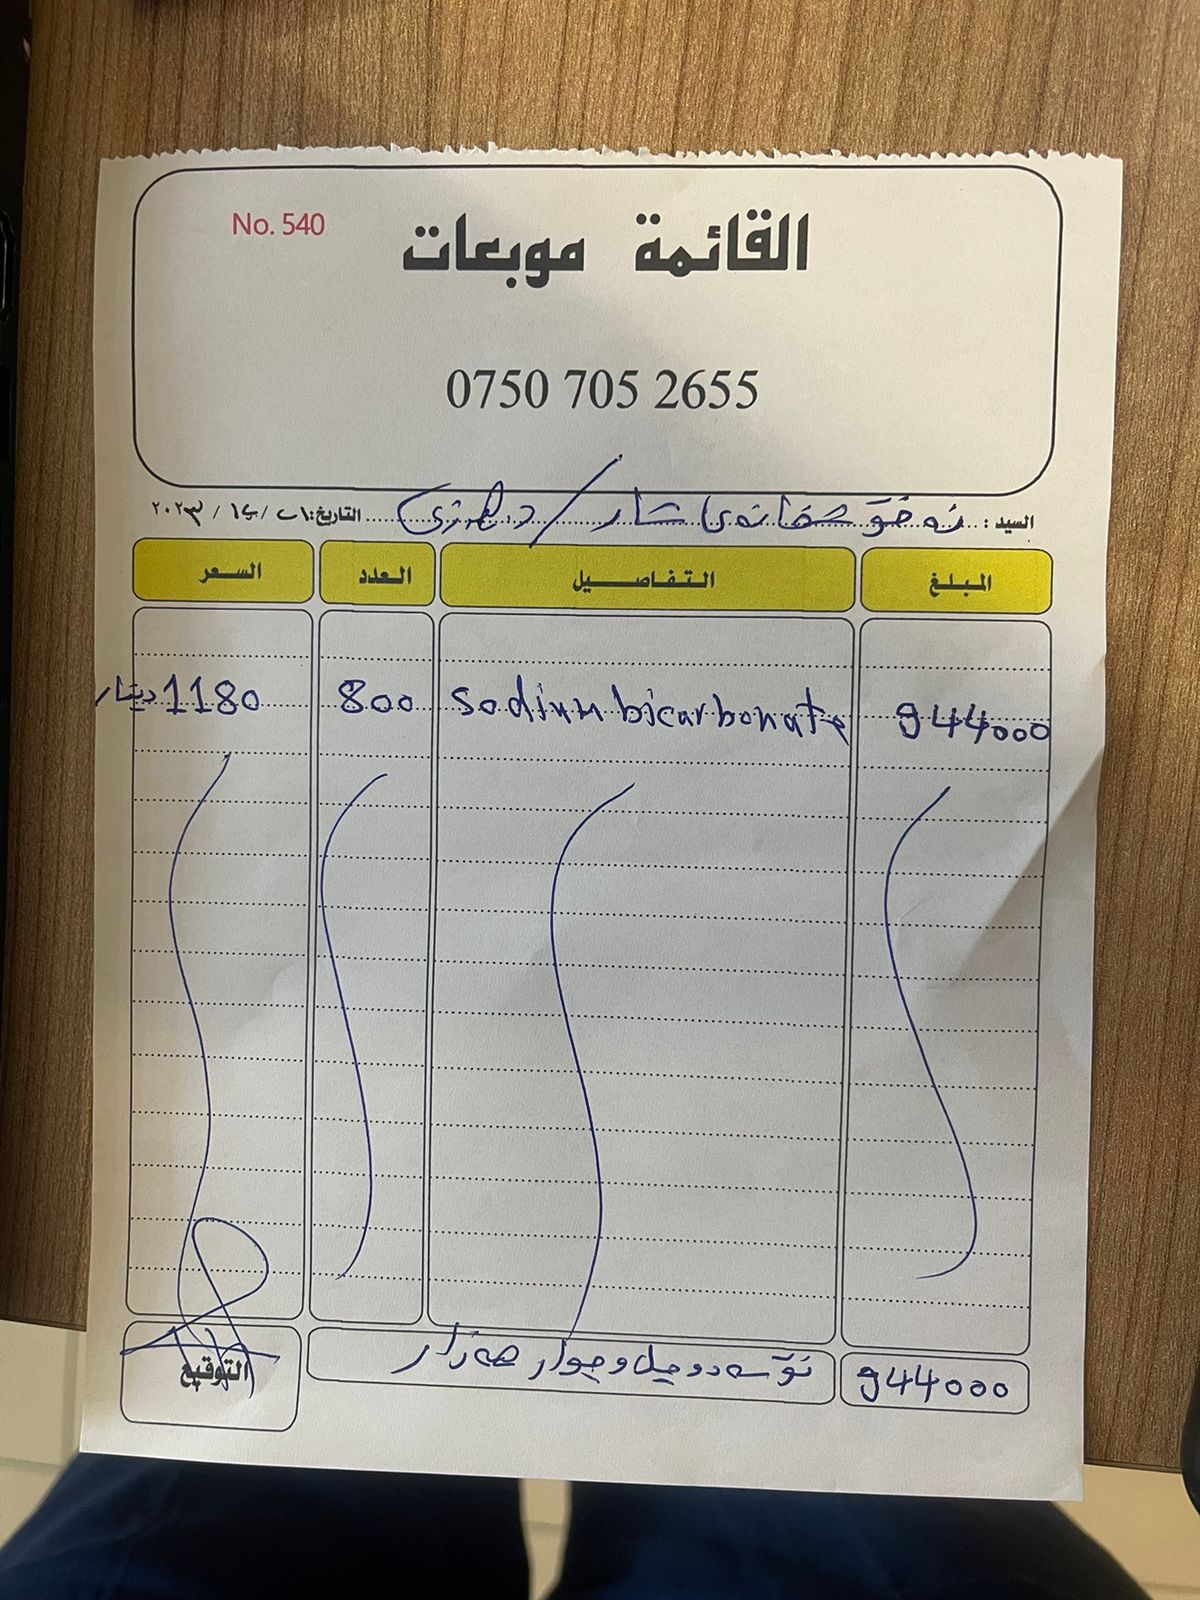 No. 540
القائمة موبعات
0750 705 2655
السيد : نەخۆشخانەى شار / د. هەژرى التاريخ: ٢١ / ١٢ / ٢٠٢٣
المبلغ التفاصيل العدد السعر
944000 sodium bicarbonate 800 1180 دینار
944000 نۆسەدو چل و چوار هەزار التوقيع